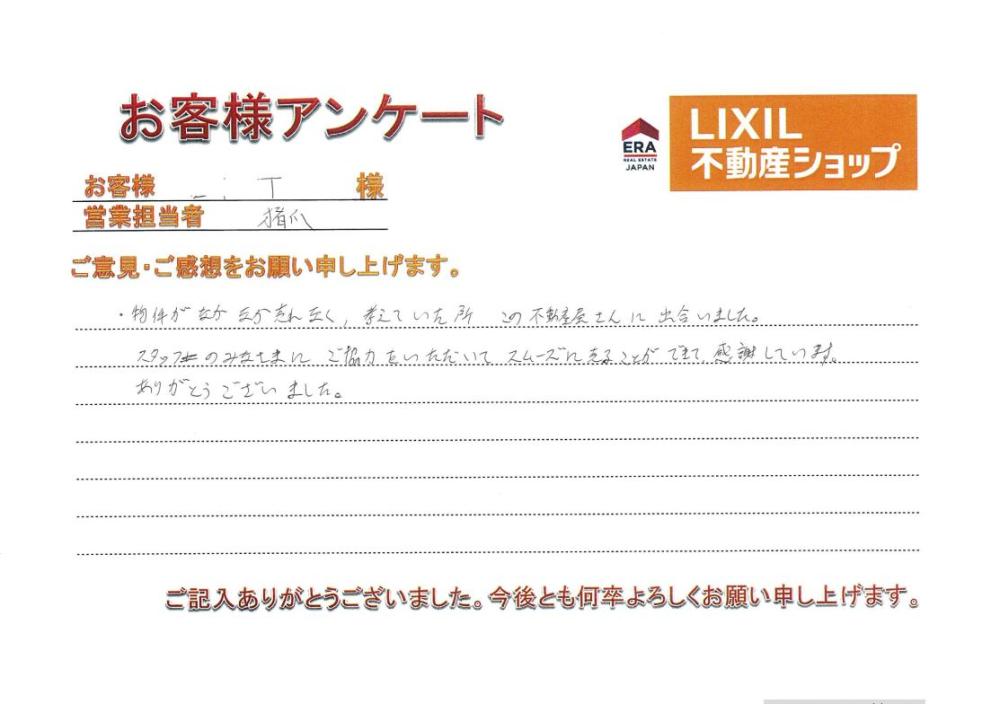 お客様アンケート
ERA
REAL ESTATE
JAPAN
LIXIL
不動産ショップ
お客様 T 様
営業担当者 猪爪
ご意見・ご感想をお願い申し上げます。
・物件がなかなか売れなく、考えていた所 この不動産屋さんに出合いました。
スタッフのみなさまにご協力をいただいてスムーズに売ることができて、感謝しています。
ありがとうございました。
ご記入ありがとうございました。今後とも何卒よろしくお願い申し上げます。